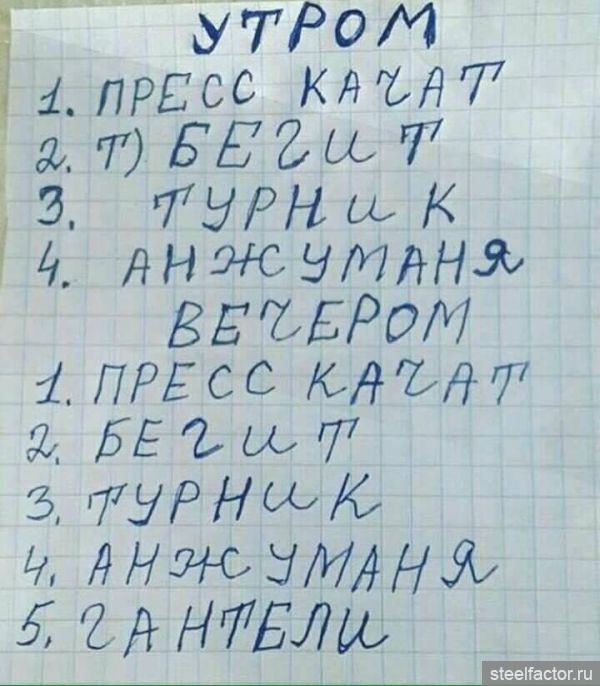 УТРОМ
1. ПРЕСС КАЧАТ
2. Т) БЕГИТ
3. ТУРНИК
4. АНЖУМАНЯ
ВЕЧЕРОМ
1. ПРЕСС КАЧАТ
2. БЕГИТ
3. ТУРНИК
4. АНЖУМАНЯ
5. ГАНТЕЛИ
steelfactor.ru